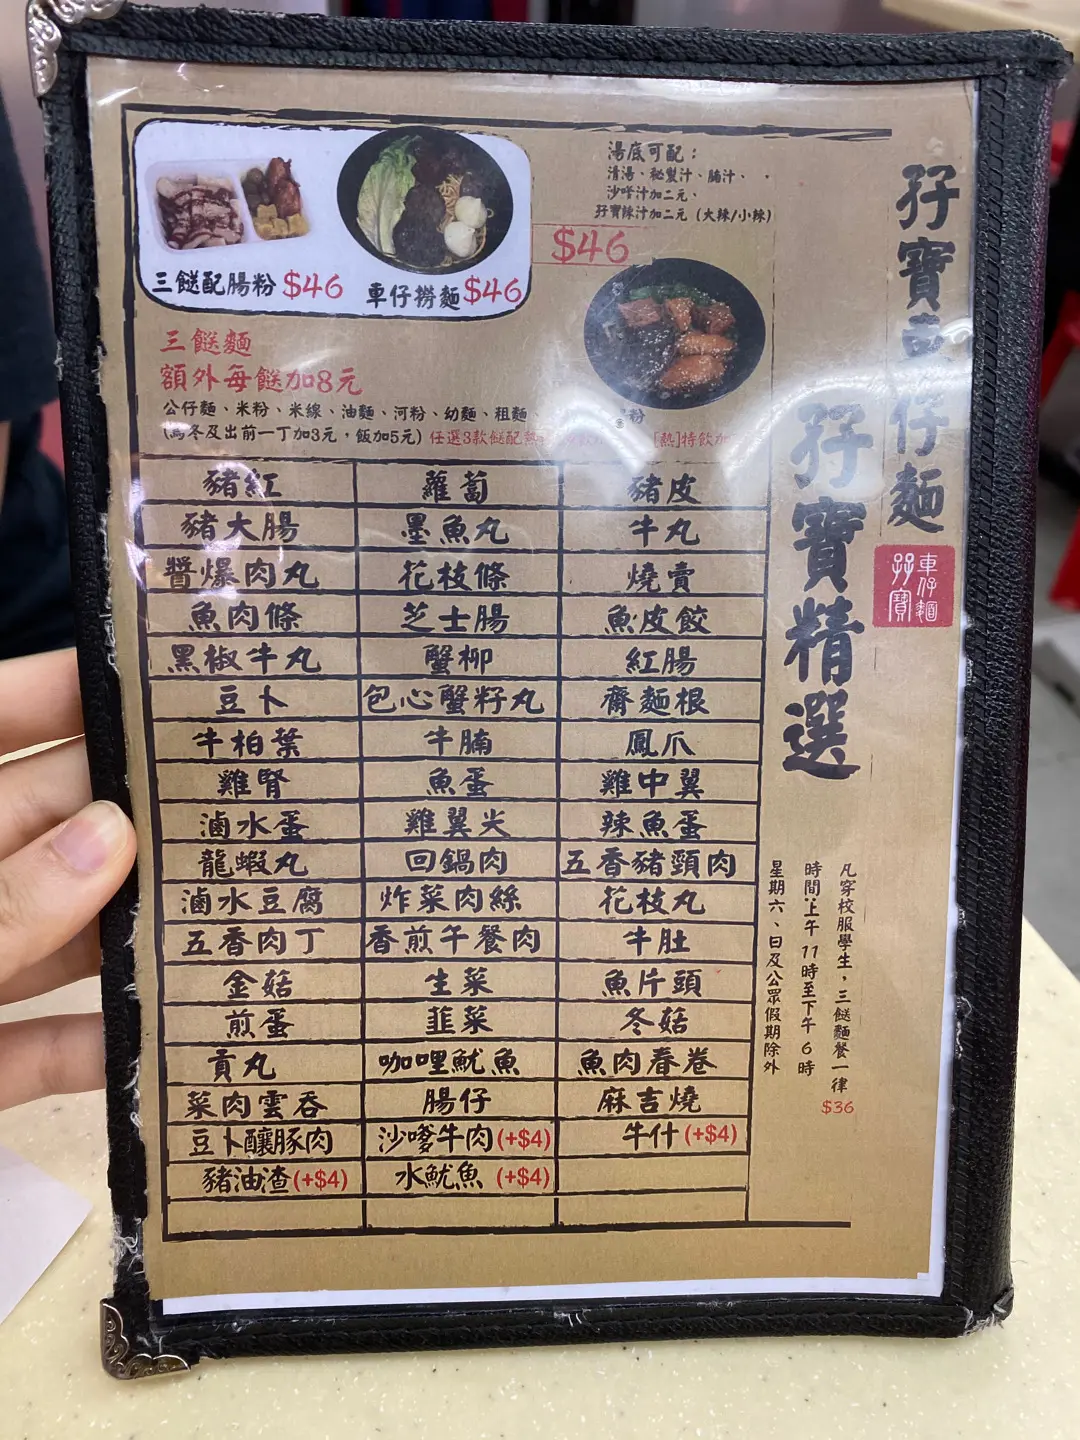 湯底可配：
清湯、秘製汁、腩汁、
沙嗲汁加二元、
孖寶辣汁加二元（大辣/小辣）
$46
三餸配腸粉 $46
車仔撈麵 $46
三餸麵
額外每餸加8元
公仔麵、米粉、米線、油麵、河粉、幼麵、粗麵、
(烏冬及出前一丁加3元，飯加5元) 任選3款餸配熱
[熱]特飲加
粉
豬紅 蘿蔔 豬皮
豬大腸 墨魚丸 牛丸
醬爆肉丸 花枝條 燒賣
魚肉條 芝士腸 魚皮餃
黑椒牛丸 蟹柳 紅腸
豆卜 包心蟹籽丸 齋麵根
牛柏葉 牛腩 鳳爪
雞腎 魚蛋 雞中翼
滷水蛋 雞翼尖 辣魚蛋
龍蝦丸 回鍋肉 五香豬頸肉
滷水豆腐 炸菜肉絲 花枝丸
五香肉丁 香煎午餐肉 牛肚
金菇 生菜 魚片頭
煎蛋 韮菜 冬菇
貢丸 咖哩魷魚 魚肉春卷
菜肉雲吞 腸仔 麻吉燒
豆卜釀豚肉 沙嗲牛肉(+$4) 牛什(+$4)
豬油渣(+$4) 水魷魚(+$4)
孖寶車仔麵
車仔麵
孖寶
孖寶精選
凡穿校服學生，三餸麵餐一律
$36
時間：上午11時至下午6時
星期六、日及公眾假期除外